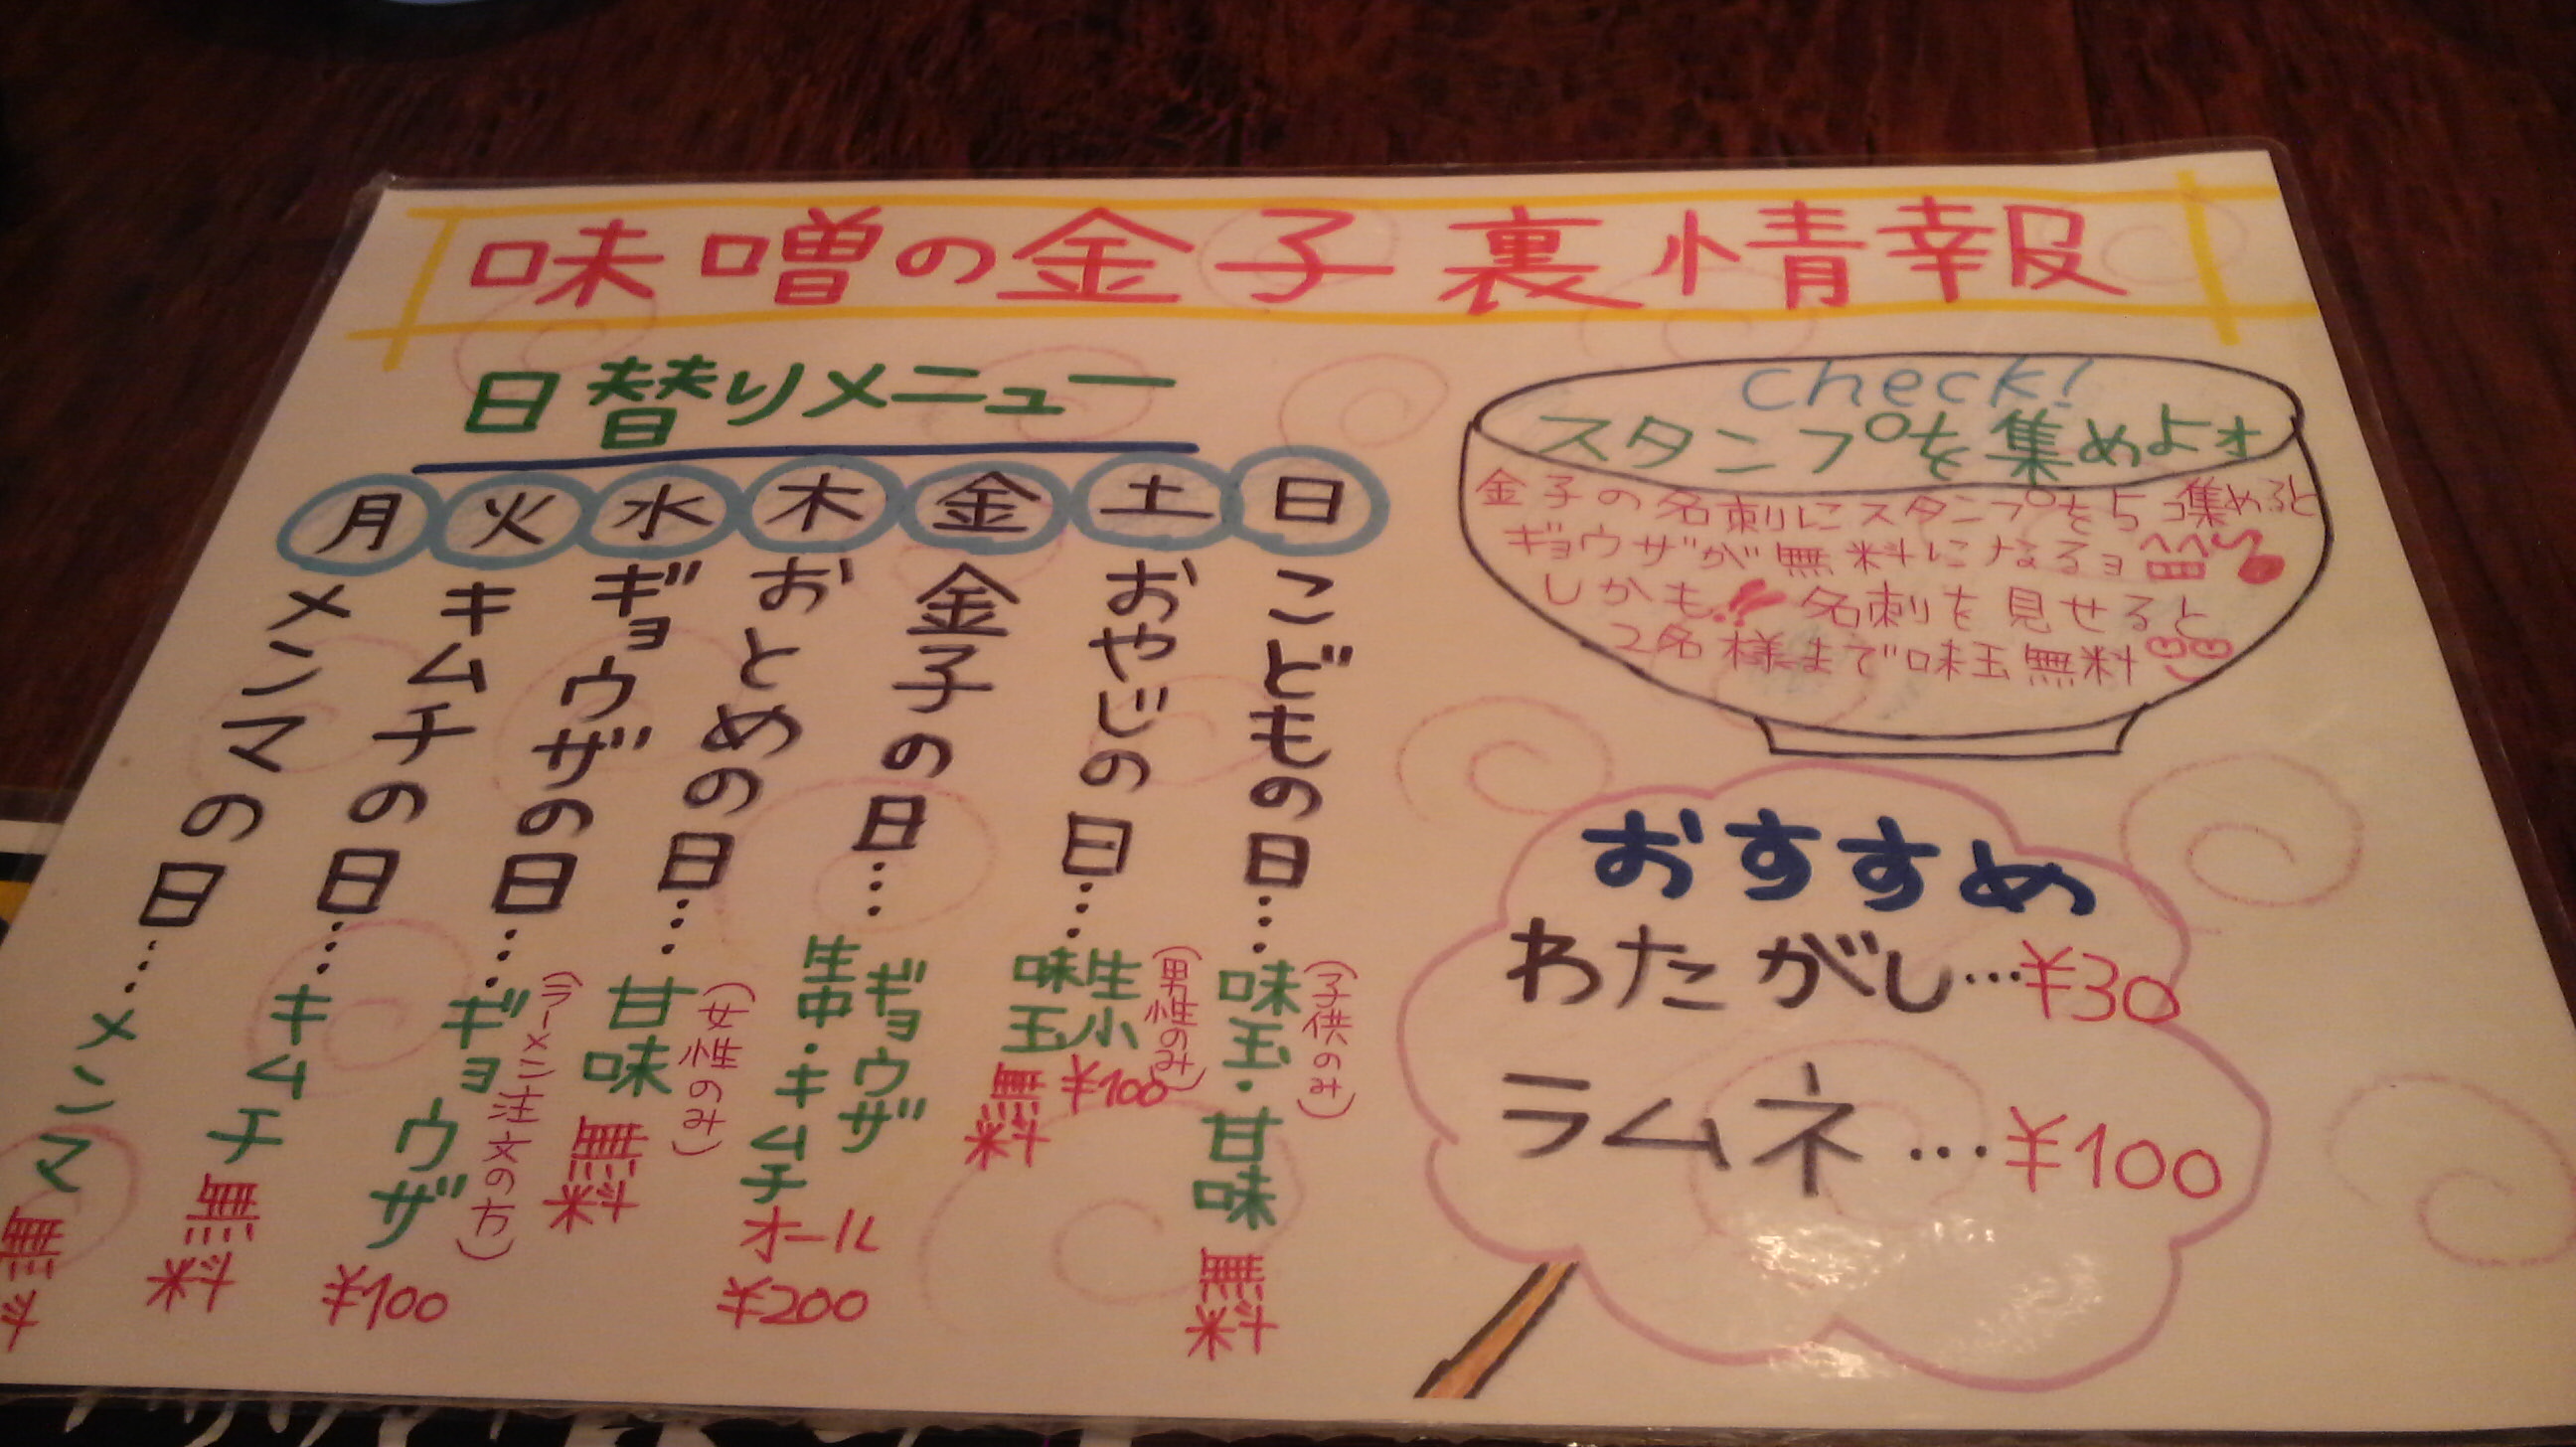 味噌の金子裏情報
日替りメニュー
月
メンマの日…メンマ
無料
火
キムチの日…キムチ
無料
水
ギョウザの日…ギョウザ
(ラーメン注文の方)
¥100
木
おとめの日…甘味
(女性のみ)
無料
金
金子の日…ギョウザ
生中・キムチ
オール
¥200
土
おやじの日…生小
(男性のみ)
¥100
味玉
無料
日
こどもの日…味玉・甘味
(子供のみ)
無料
check!
スタンプを集めよォ
金子の名刺にスタンプを5コ集めると
ギョウザが無料になるョ
しかも!! 名刺を見せると
2名様まで味玉無料
おすすめ
わたがし…¥30
ラムネ…¥100